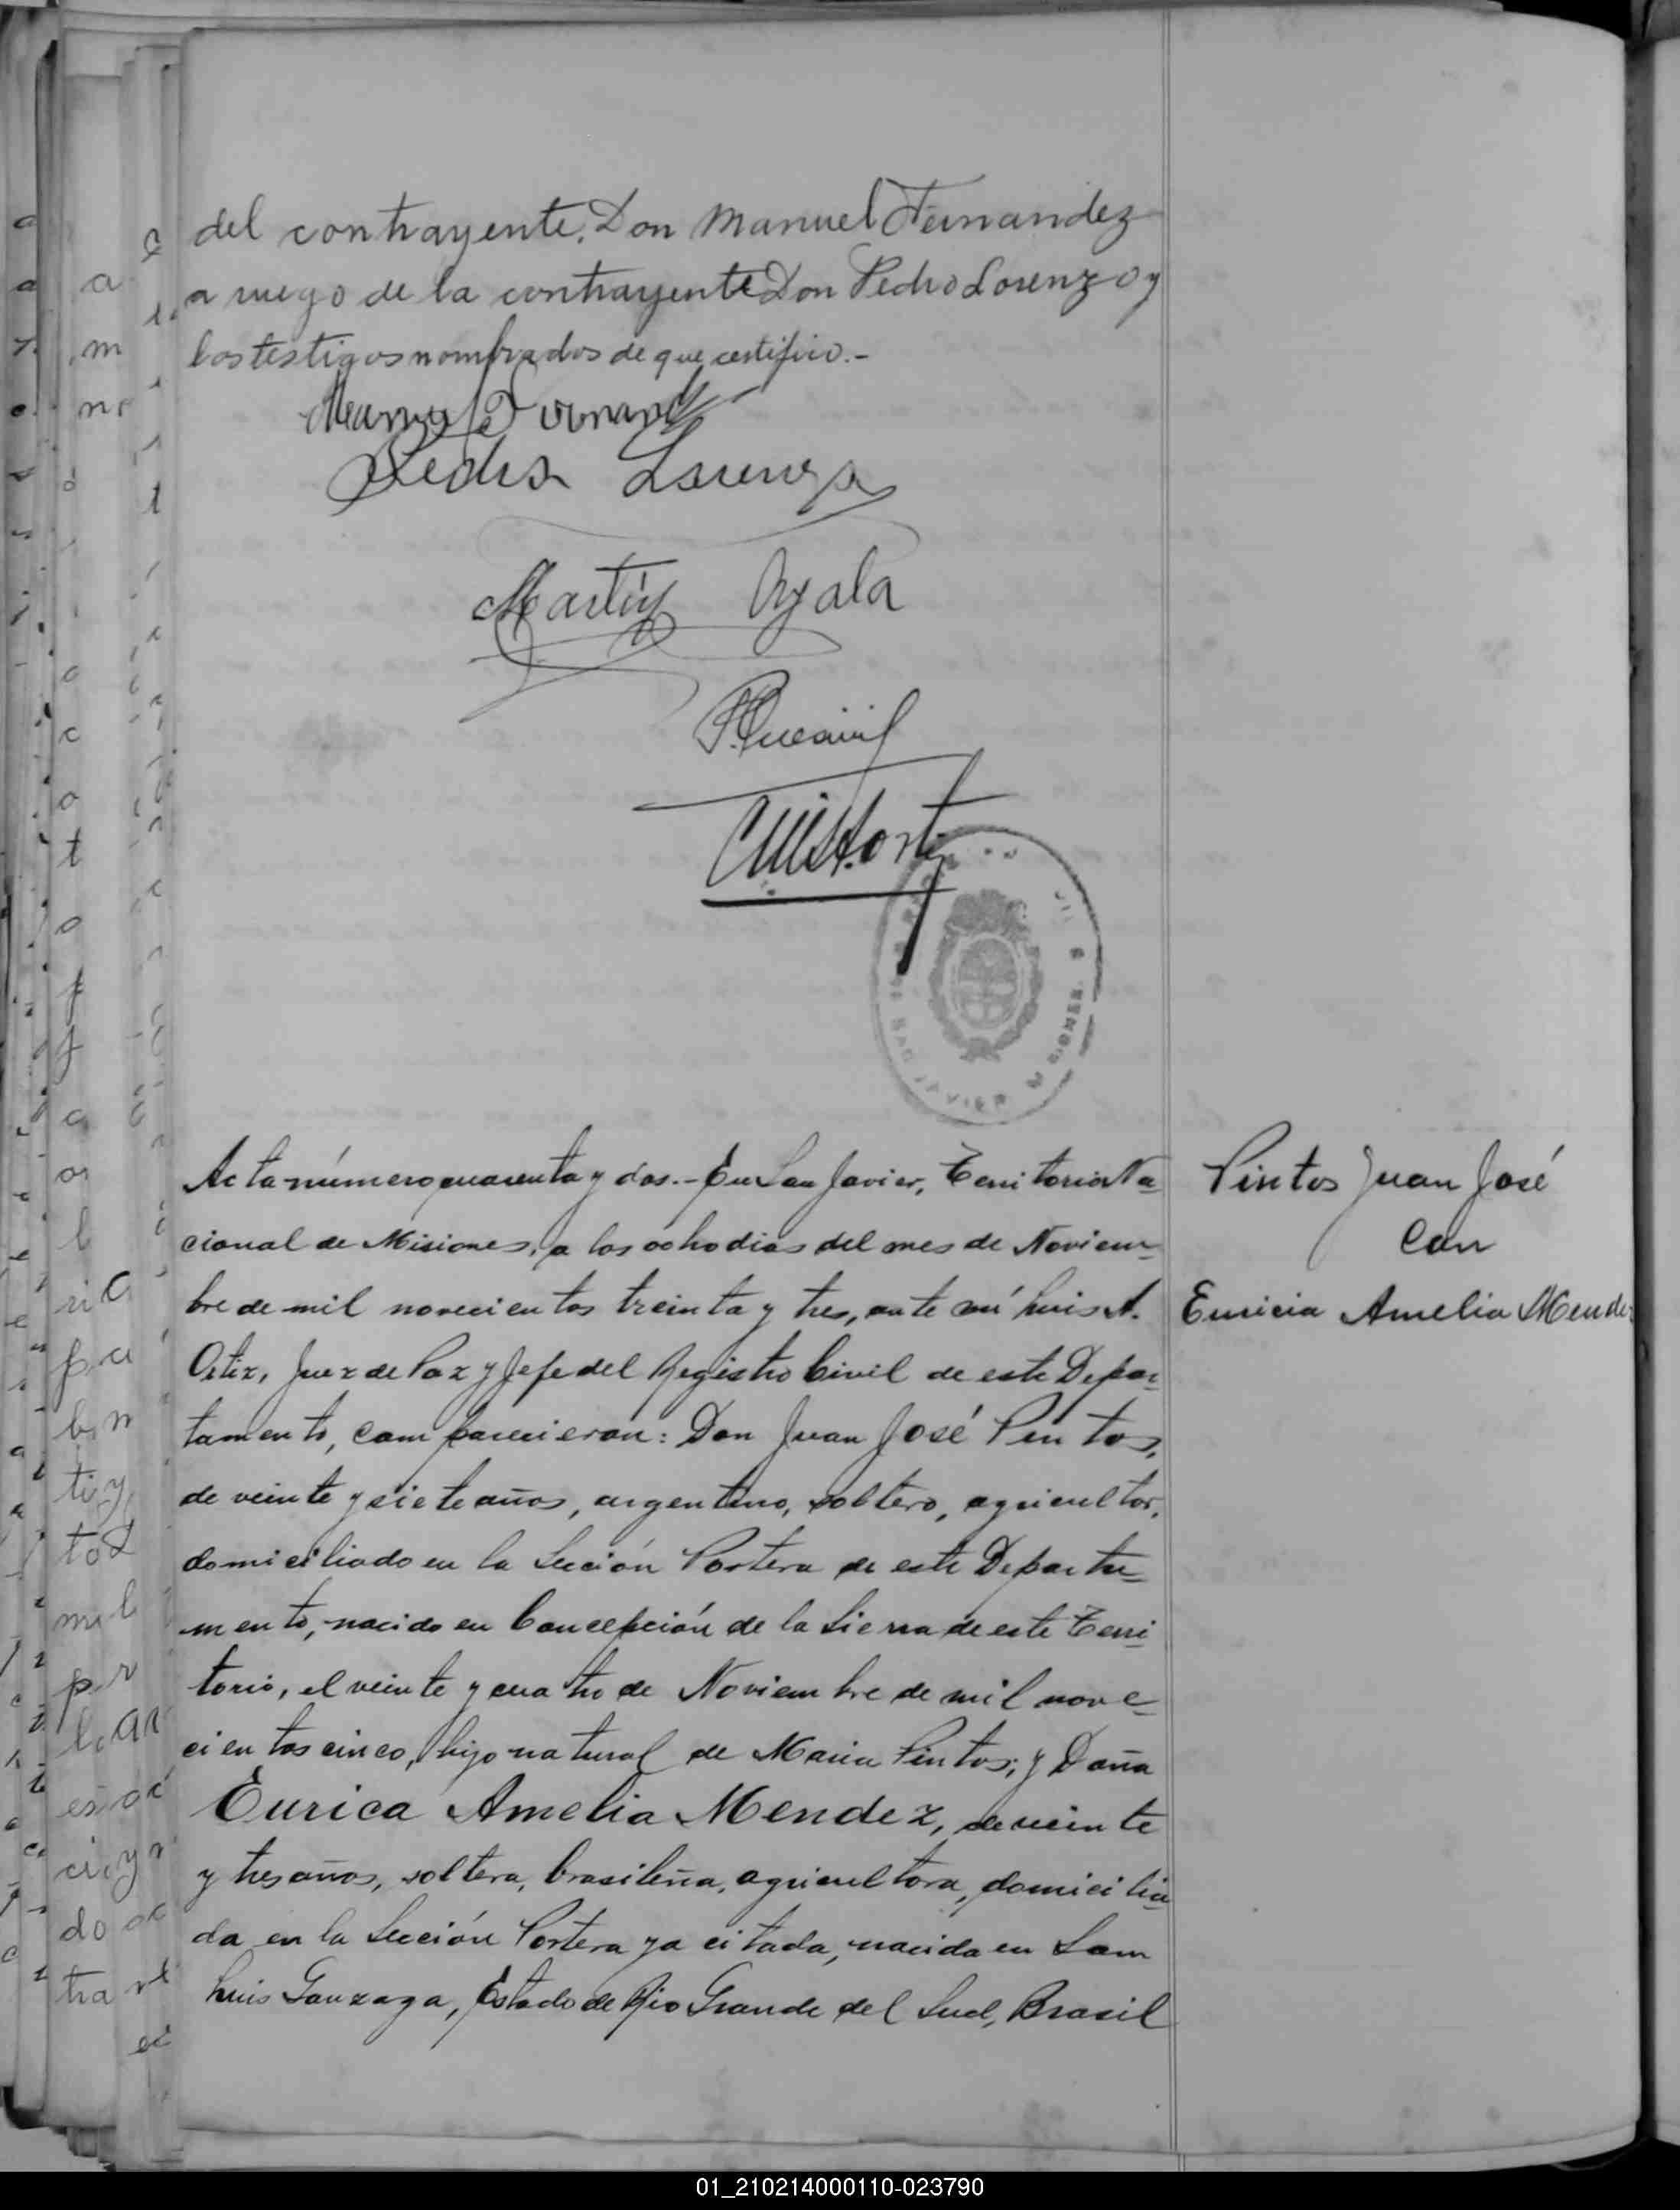 del contrayente, Don Manuel Fernandez
a ruego de la contrayente Don Pedro Lorenzo y
los testigos nombrados de que certifico.-
Manuel Fernand
Pedro Lorenzo
Martín Ayala
SAN JAVIER
MISIONES
Acta número cuarenta y dos.- En San Javier, Territorio Na=
cional de Misiones, a los ocho dias del mes de Noviem=
bre de mil novecientos treinta y tres, ante mí Luis A.
Ortiz, Juez de Paz y Jefe del Registro Civil de este Depar=
tamento, comparecieron: Don Juan José Pintos,
de veinte y siete años, argentino, soltero, agricultor,
domiciliado en la Sección Portera de este Departa=
mento, nacido en Concepción de la Sierra de este Terri=
torio, el veinte y cuatro de Noviembre de mil nove=
cientos cinco, hijo natural de Maria Pintos; y Doña
Eurica Amelia Mendez, de veinte
y tres años, soltera, brasileña, agricultora, domicilia
da en la Sección Portera ya citada, nacida en Sam
Luis Gonzaga, Estado de Rio Grande del Sud, Brasil
Pintos Juan José
Con
Euricia Amelia Mendez
01_210214000110-023790